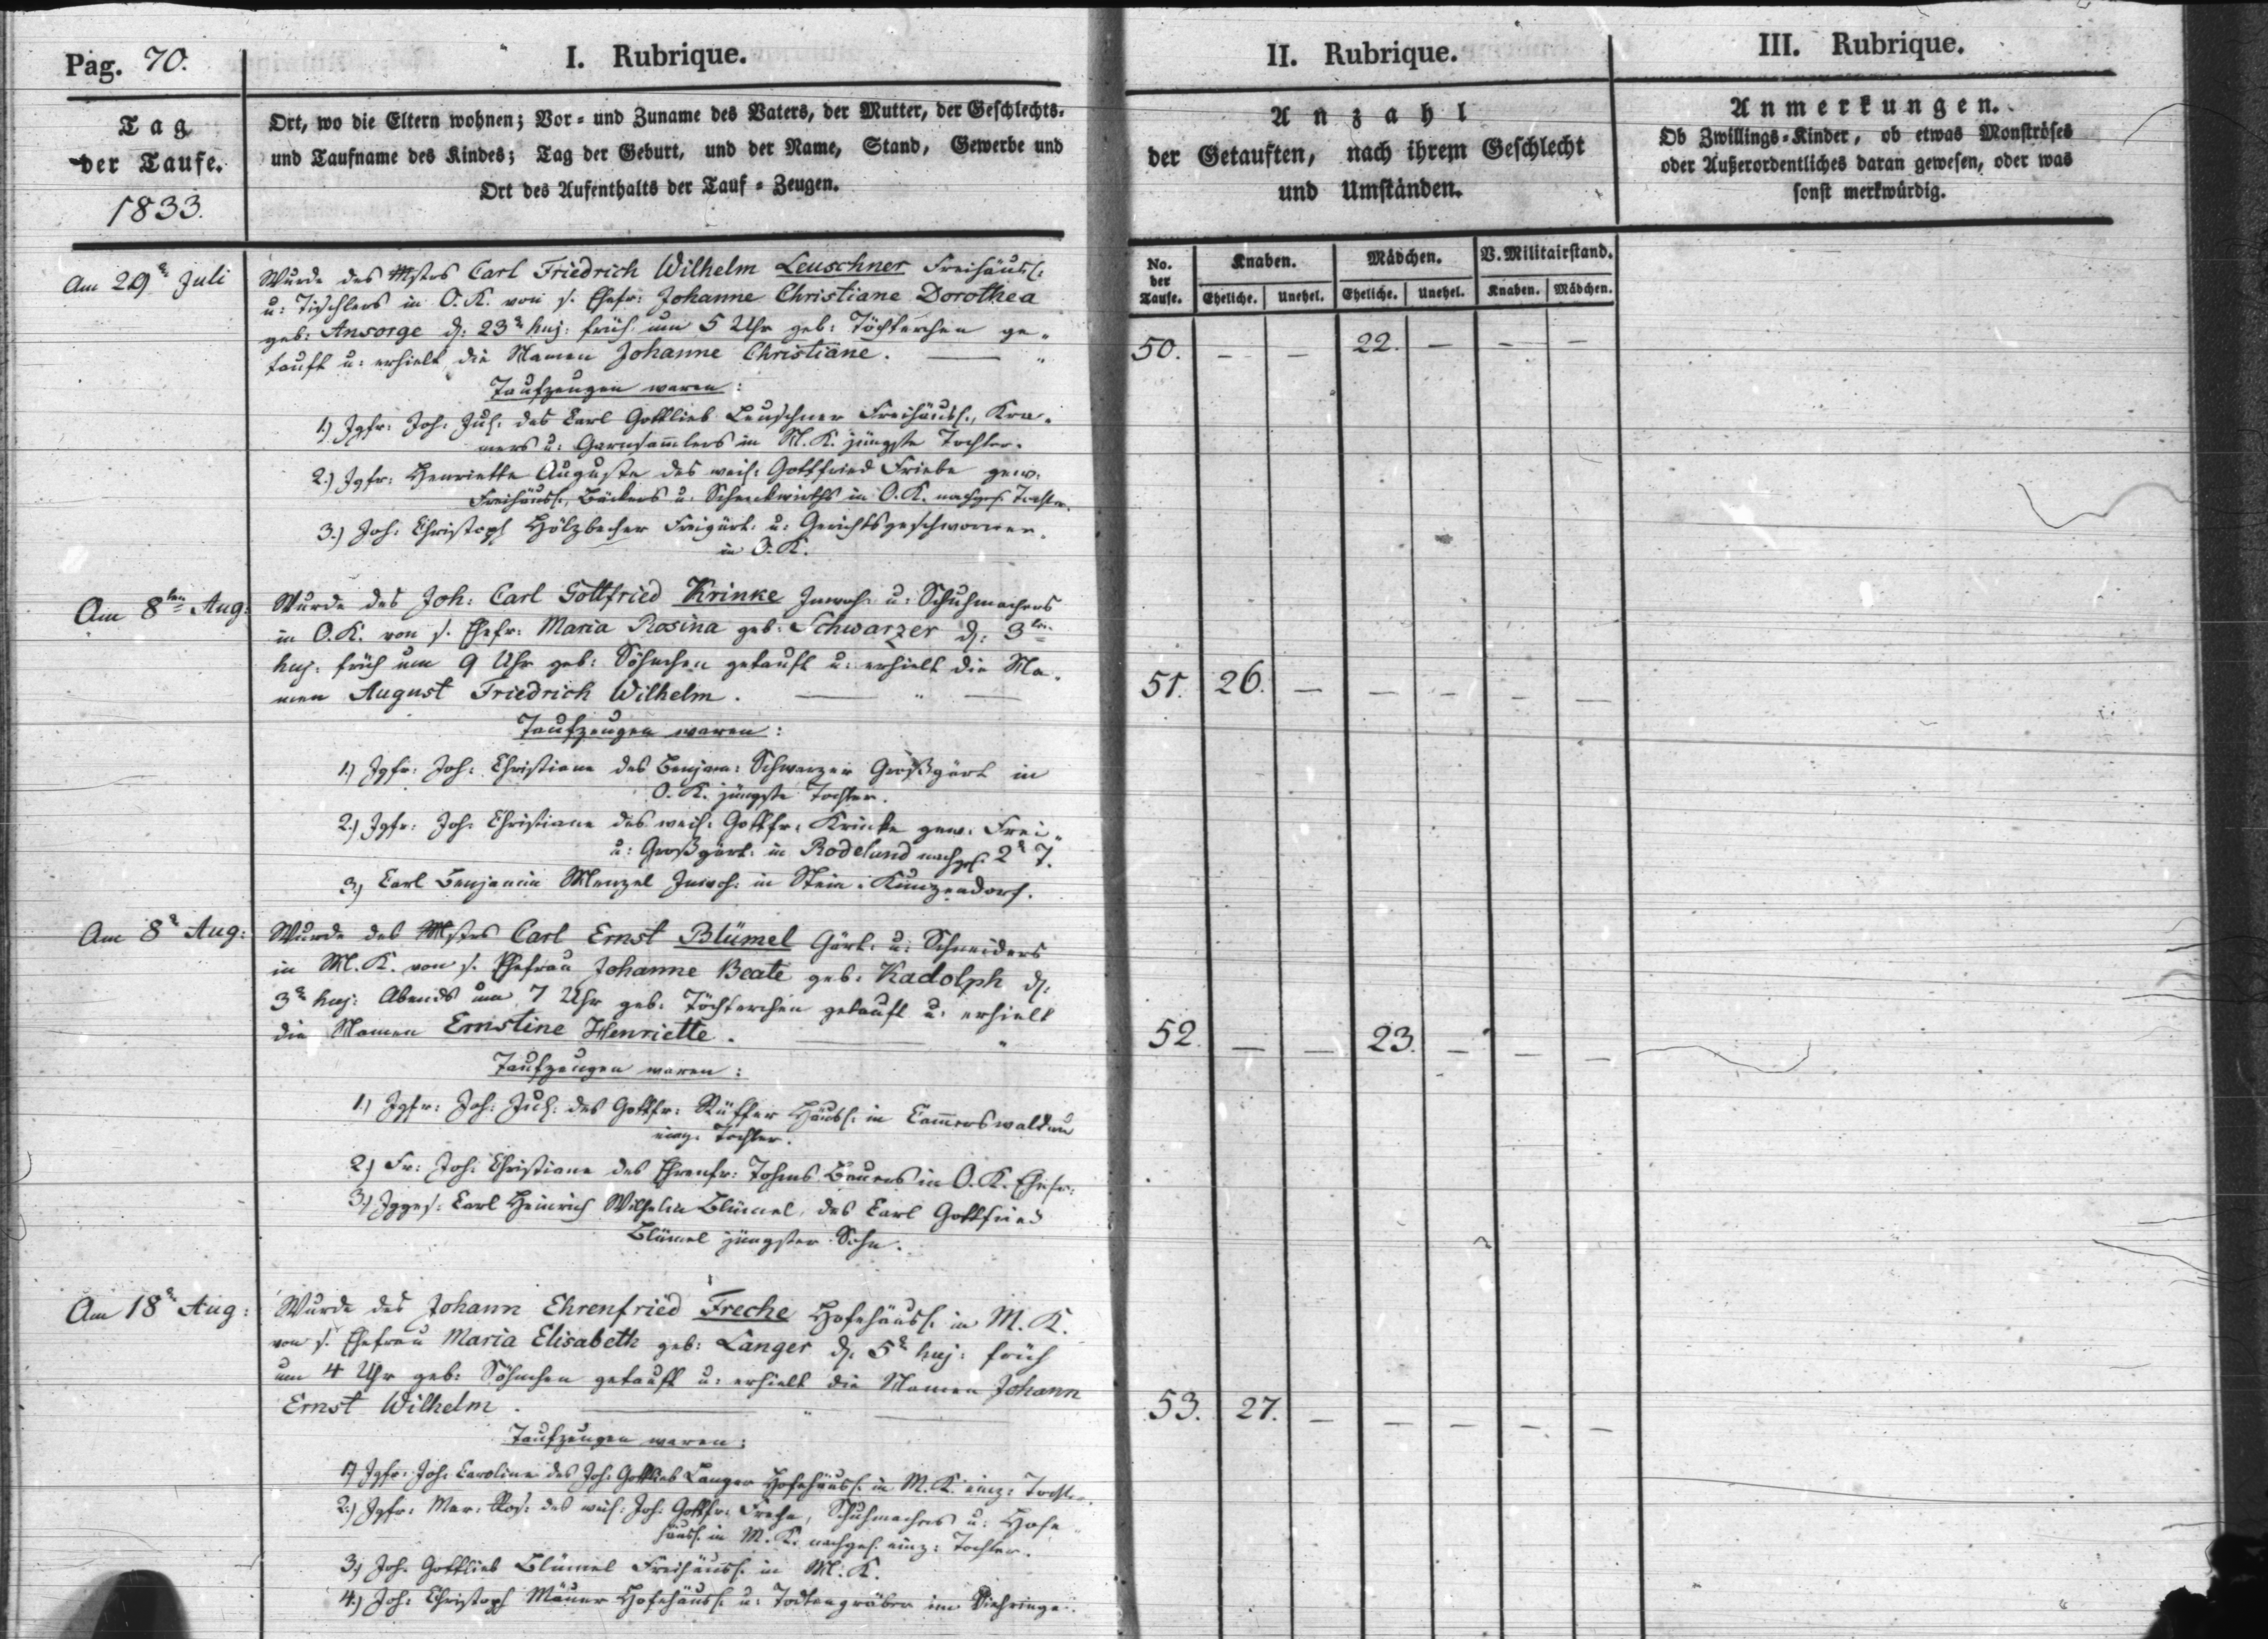 Pag. 70.
I. Rubrique.
Tag
der Taufe.
1833.
Ort, wo die Eltern wohnen; Vor- und Zuname des Vaters, der Mutter, der Geschlechts-
und Taufname des Kindes; Tag der Geburt, und der Name, Stand, Gewerbe und
Ort des Aufenthalts der Tauf-Zeugen.
II. Rubrique.
Anzahl
der Getauften, nach ihrem Geschlecht
und Umständen.
III. Rubrique.
Anmerkungen.
Ob Zwillings-Kinder, ob etwas Monströses
oder Außerordentliches daran gewesen, oder was
sonst merkwürdig.
No. der Taufe.
Knaben. Mädchen. V. Militairstand.
Eheliche. Unehel. Eheliche. Unehel. Knaben. Mädchen.
Am 29 Juli
Wurde des Mstrs Carl Friedrich Wilhelm Leuschner Freihäusl:
u: Tischlers in O. K. von s. Ehefr: Johanne Christiane Dorothea
geb: Ansorge d: 23 huj: früh um 5 Uhr geb: Töchterchen ge-
tauft u: erhielt die Namen Johanne Christiane.
50. – – 22. – – –
Taufzeugen waren:
1.) Jgfr: Joh: Jul: des Carl Gottlieb Leuschner Freihäusl., Kra-
mers u: Garnsam̄lers in M. K. jüngste Tochter.
2.) Jgfr: Henriette Auguste des weil: Gottfried Friebe gew:
Freihäusl., Bäckers u: Schenkwirths in O. K. nachgel. Tochter.
3.) Joh: Christoph Hölzbecher Freigärt: u: Gerichtsgeschworner
in O. K.
Am 8ten Aug:
Wurde des Joh: Carl Gottfried Krinke Inwoh: u: Schuhmachers
in O. K. von s. Ehefr: Maria Rosina geb: Schwarzer d: 3ten
huj: früh um 9 Uhr geb: Söhnchen getauft u: erhielt die Na-
men August Friedrich Wilhelm.
51. 26. – – – – –
Taufzeugen waren:
1.) Jgfr: Joh: Christiane des Benjam: Schwarzer Großgärt in
O. K. jüngste Tochter.
2.) Jgfr: Joh: Christiane des weil: Gottfr: Krinke gew: Frei-
u: Großgärt: in Rodeland nachgel. 2 T.
3.) Carl Benjamin Menzel Inwoh: in Stein-Kunzendorf.
Am 8 Aug:
Wurde des Mstrs Carl Ernst Blümel Gärt: u: Schneiders
in M. K. von s. Ehefrau Johanne Beate geb: Kadolph d:
3 huj: Abends um 7 Uhr geb: Töchterchen getauft u: erhielt
die Namen Ernstine Henriette.
52. – – 23. – – –
Taufzeugen waren:
1.) Jgfr: Joh: Jul: des Gottfr: Rüffer Häusl: in Cam̄erswaldau
einz: Tochter.
2.) Fr: Joh: Christiane des Ehrenfr: Bauers in O. K. Ehefr:
3.) Jgges: Carl Heinrich Wilhelm Blümel, des Carl Gottfried
Blümel jüngster Sohn.
Am 18 Aug:
Wurde des Johann Ehrenfried Freche Hofehäusl: in M. K.
von s. Ehefrau Maria Elisabeth geb: Langer d: 5 huj: früh
um 4 Uhr geb: Söhnchen getauft u: erhielt die Namen Johann
Ernst Wilhelm.
53. 27. – – – – –
Taufzeugen waren:
1.) Jgfr: Joh: Caroline des Joh: Gottlieb Langer Hofehäusl: in M. K. einz: Tochter.
2.) Jgfr: Mar: Ros: des weil: Joh: Gottfr: Freche, Schuhmachers u: Hofe-
häusl: in M. K. nachgel. einz: Tochter.
3.) Joh: Gottlieb Blümel Freihäusl: in M. K.
4.) Joh: Christoph Mäuer Hofehäusl: u: Todtengräber im